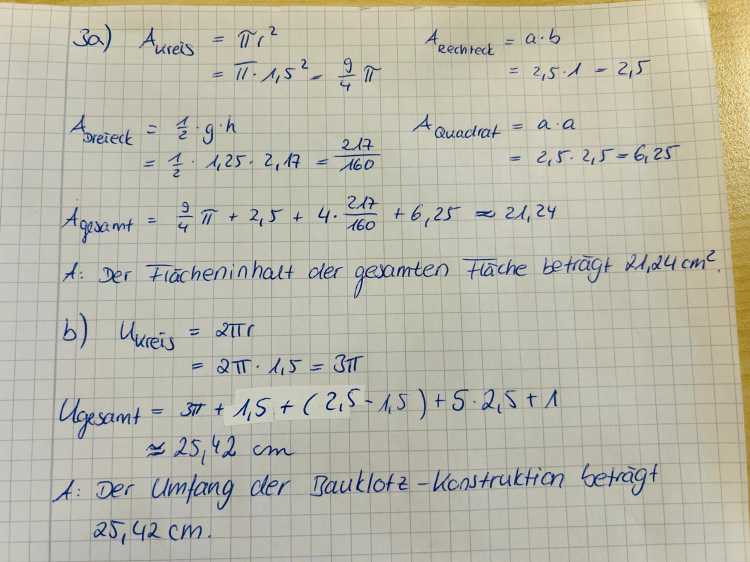 3a) A Kreis = πr²
= π · 1,5² = 9/4 π
A Rechteck = a · b
= 2,5 · 1 = 2,5
A Dreieck = 1/2 · g · h
= 1/2 · 1,25 · 2,17 = 217/160
A Quadrat = a · a
= 2,5 · 2,5 = 6,25
A gesamt = 9/4 π + 2,5 + 4 · 217/160 + 6,25 ≈ 21,24
A: Der Flächeninhalt der gesamten Fläche beträgt 21,24 cm².
b) U Kreis = 2πr
= 2π · 1,5 = 3π
U gesamt = 3π + 1,5 + (2,5 - 1,5) + 5 · 2,5 + 1
≈ 25,42 cm
A: Der Umfang der Bauklotz-Konstruktion beträgt
25,42 cm.